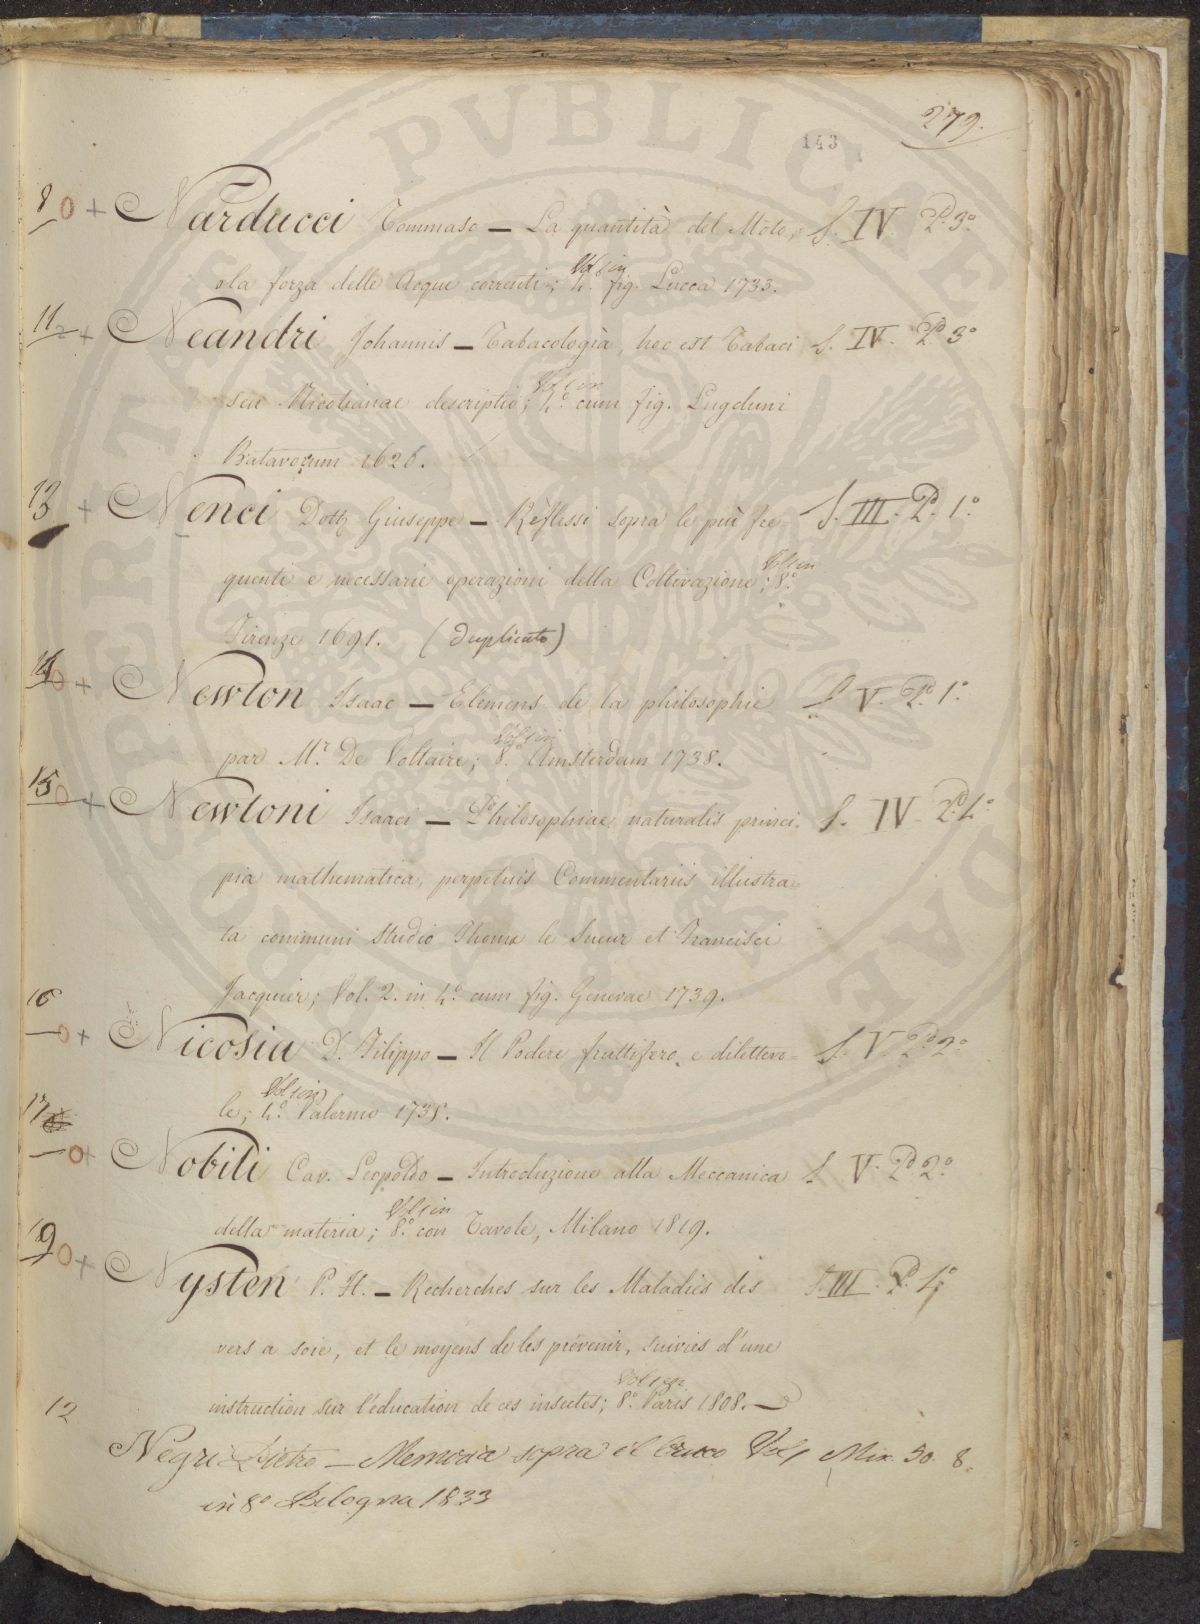 279.
143
8 0 + Narducci Tommaso — La quantità del Moto, S. IV. P.º 3º
o la forza delle Acque correnti; Vol 1 in 4.º fig. Lucca 1733.
11 + Neandri Johannis — Tabacologia, hoc est Tabaci S. IV. P.º 3º
seu Nicotianae descriptio; Vol 1 in 4.º cum fig. Lugduni
Batavorum 1626.
13 + Nenci Dott. Giuseppe — Riflessi sopra le più fre- S. III. P.º 1.º
quenti e necessarie operazioni della Coltivazione; Vol 1 in 8.º
Firenze 1691. (duplicato)
14 0 + Newton Isaac — Elemens de la philosophie S. V. P.º 1.º
par M.r De Voltaire; Vol 1 in 8.º Amsterdam 1738.
15 0 + Newtoni Isaaci — Philosophiae naturalis princi- S. IV. P.º 4º
pia mathematica, perpetuis Commentariis illustra-
ta communi studio Thomæ le Sueur et Francisci
Jacquier; Vol. 2. in 4.º cum fig. Genevae 1739.
16 0 + Nicosia D. Filippo — Il Podere fruttifero, e dilettevo= S. V. P.º 2º
le; Vol 1 in 4.º Palermo 1735.
17 0 + Nobili Cav. Leopoldo — Introduzione alla Meccanica S. V. P.º 2º
della materia; Vol 1 in 8.º con Tavole, Milano 1819.
19 0 + Nysten P. H. — Recherches sur les Maladies des S. III. P.º 4º
vers a soie, et le moyens de les prévenir, suivies d'une
instruction sur l'education de ces insectes; Vol 1 in 8.º Paris 1808. —
12 Negri Pietro — Memoria sopra il bruco Vol 1 Mix. 50. 8.
in 8º Bologna 1833